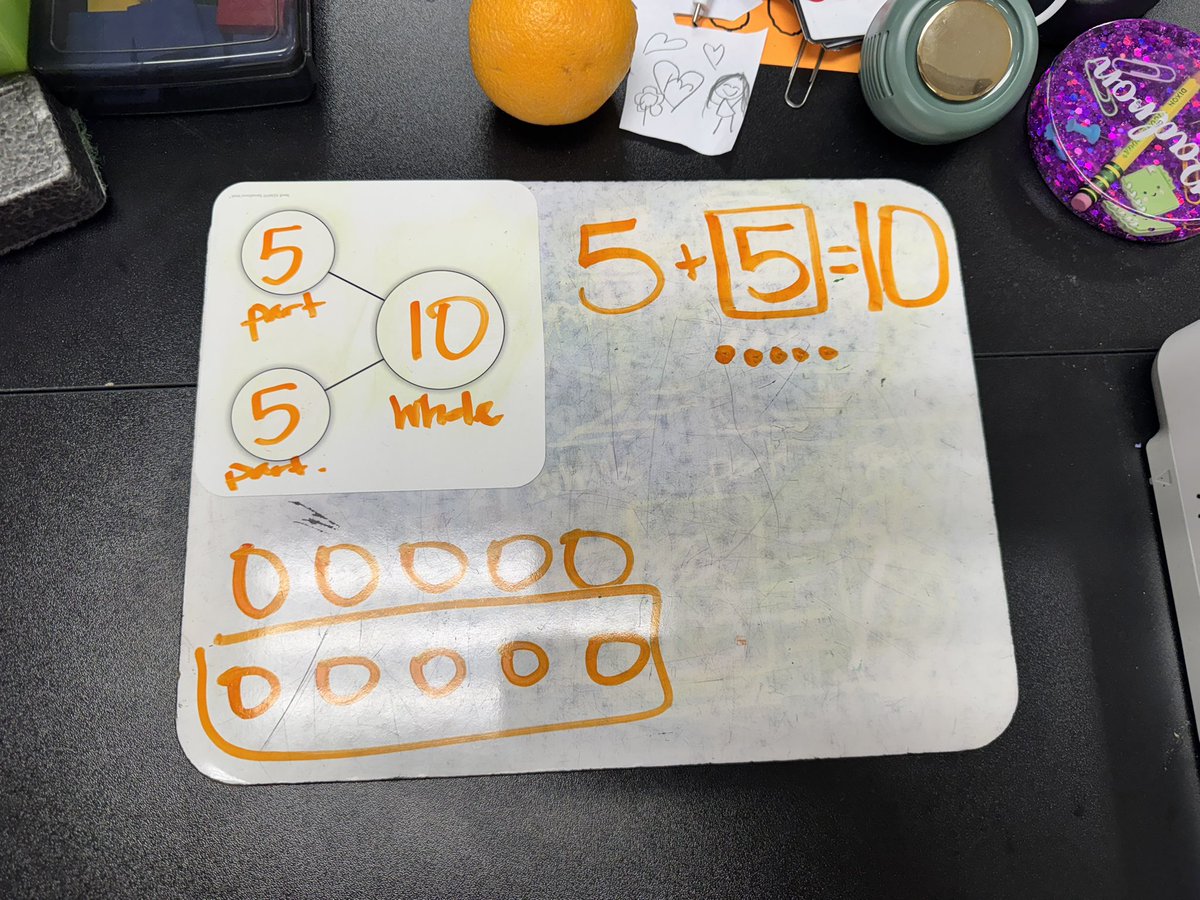 5
part
10
whole
5
part.
5 + 5 = 10